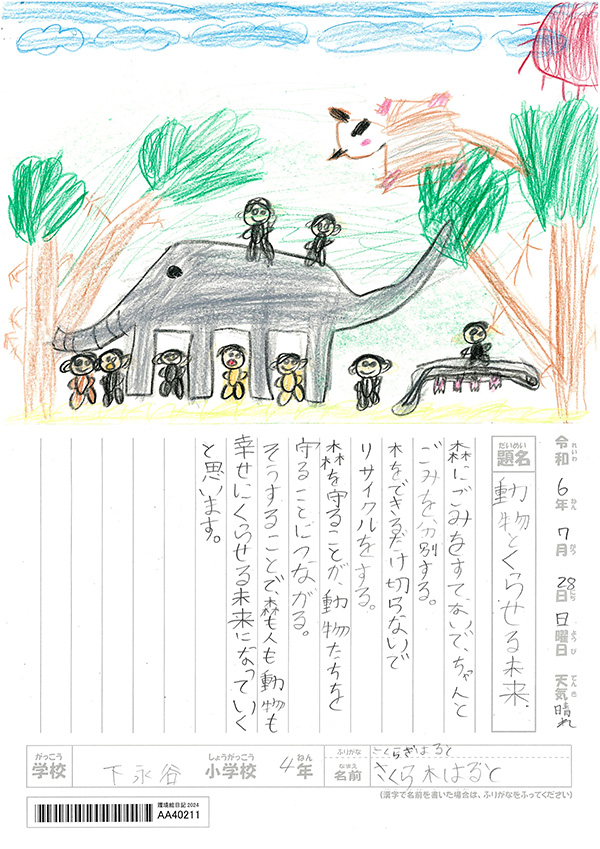 令和6年7月28日日曜日 天気晴れ
れいわ ねん がつ にち ようび てんき
だいめい
題名 動物とくらせる未来.
森にごみをすてないで、ちゃんと
ごみを分別する。
木をできるだけ切らないで
リサイクルをする。
森を守ることが、動物たちを
守ることにつながる。
そうすることで、森も人も動物も
幸せにくらせる未来になっていく
と思います。
がっこう しょうがっこう ねん
学校 下永谷 小学校 4年
ふりがな さくらぎはると
なまえ
名前 さくら木はると
(漢字で名前を書いた場合は、ふりがなをふってください)
環境絵日記2024
AA40211